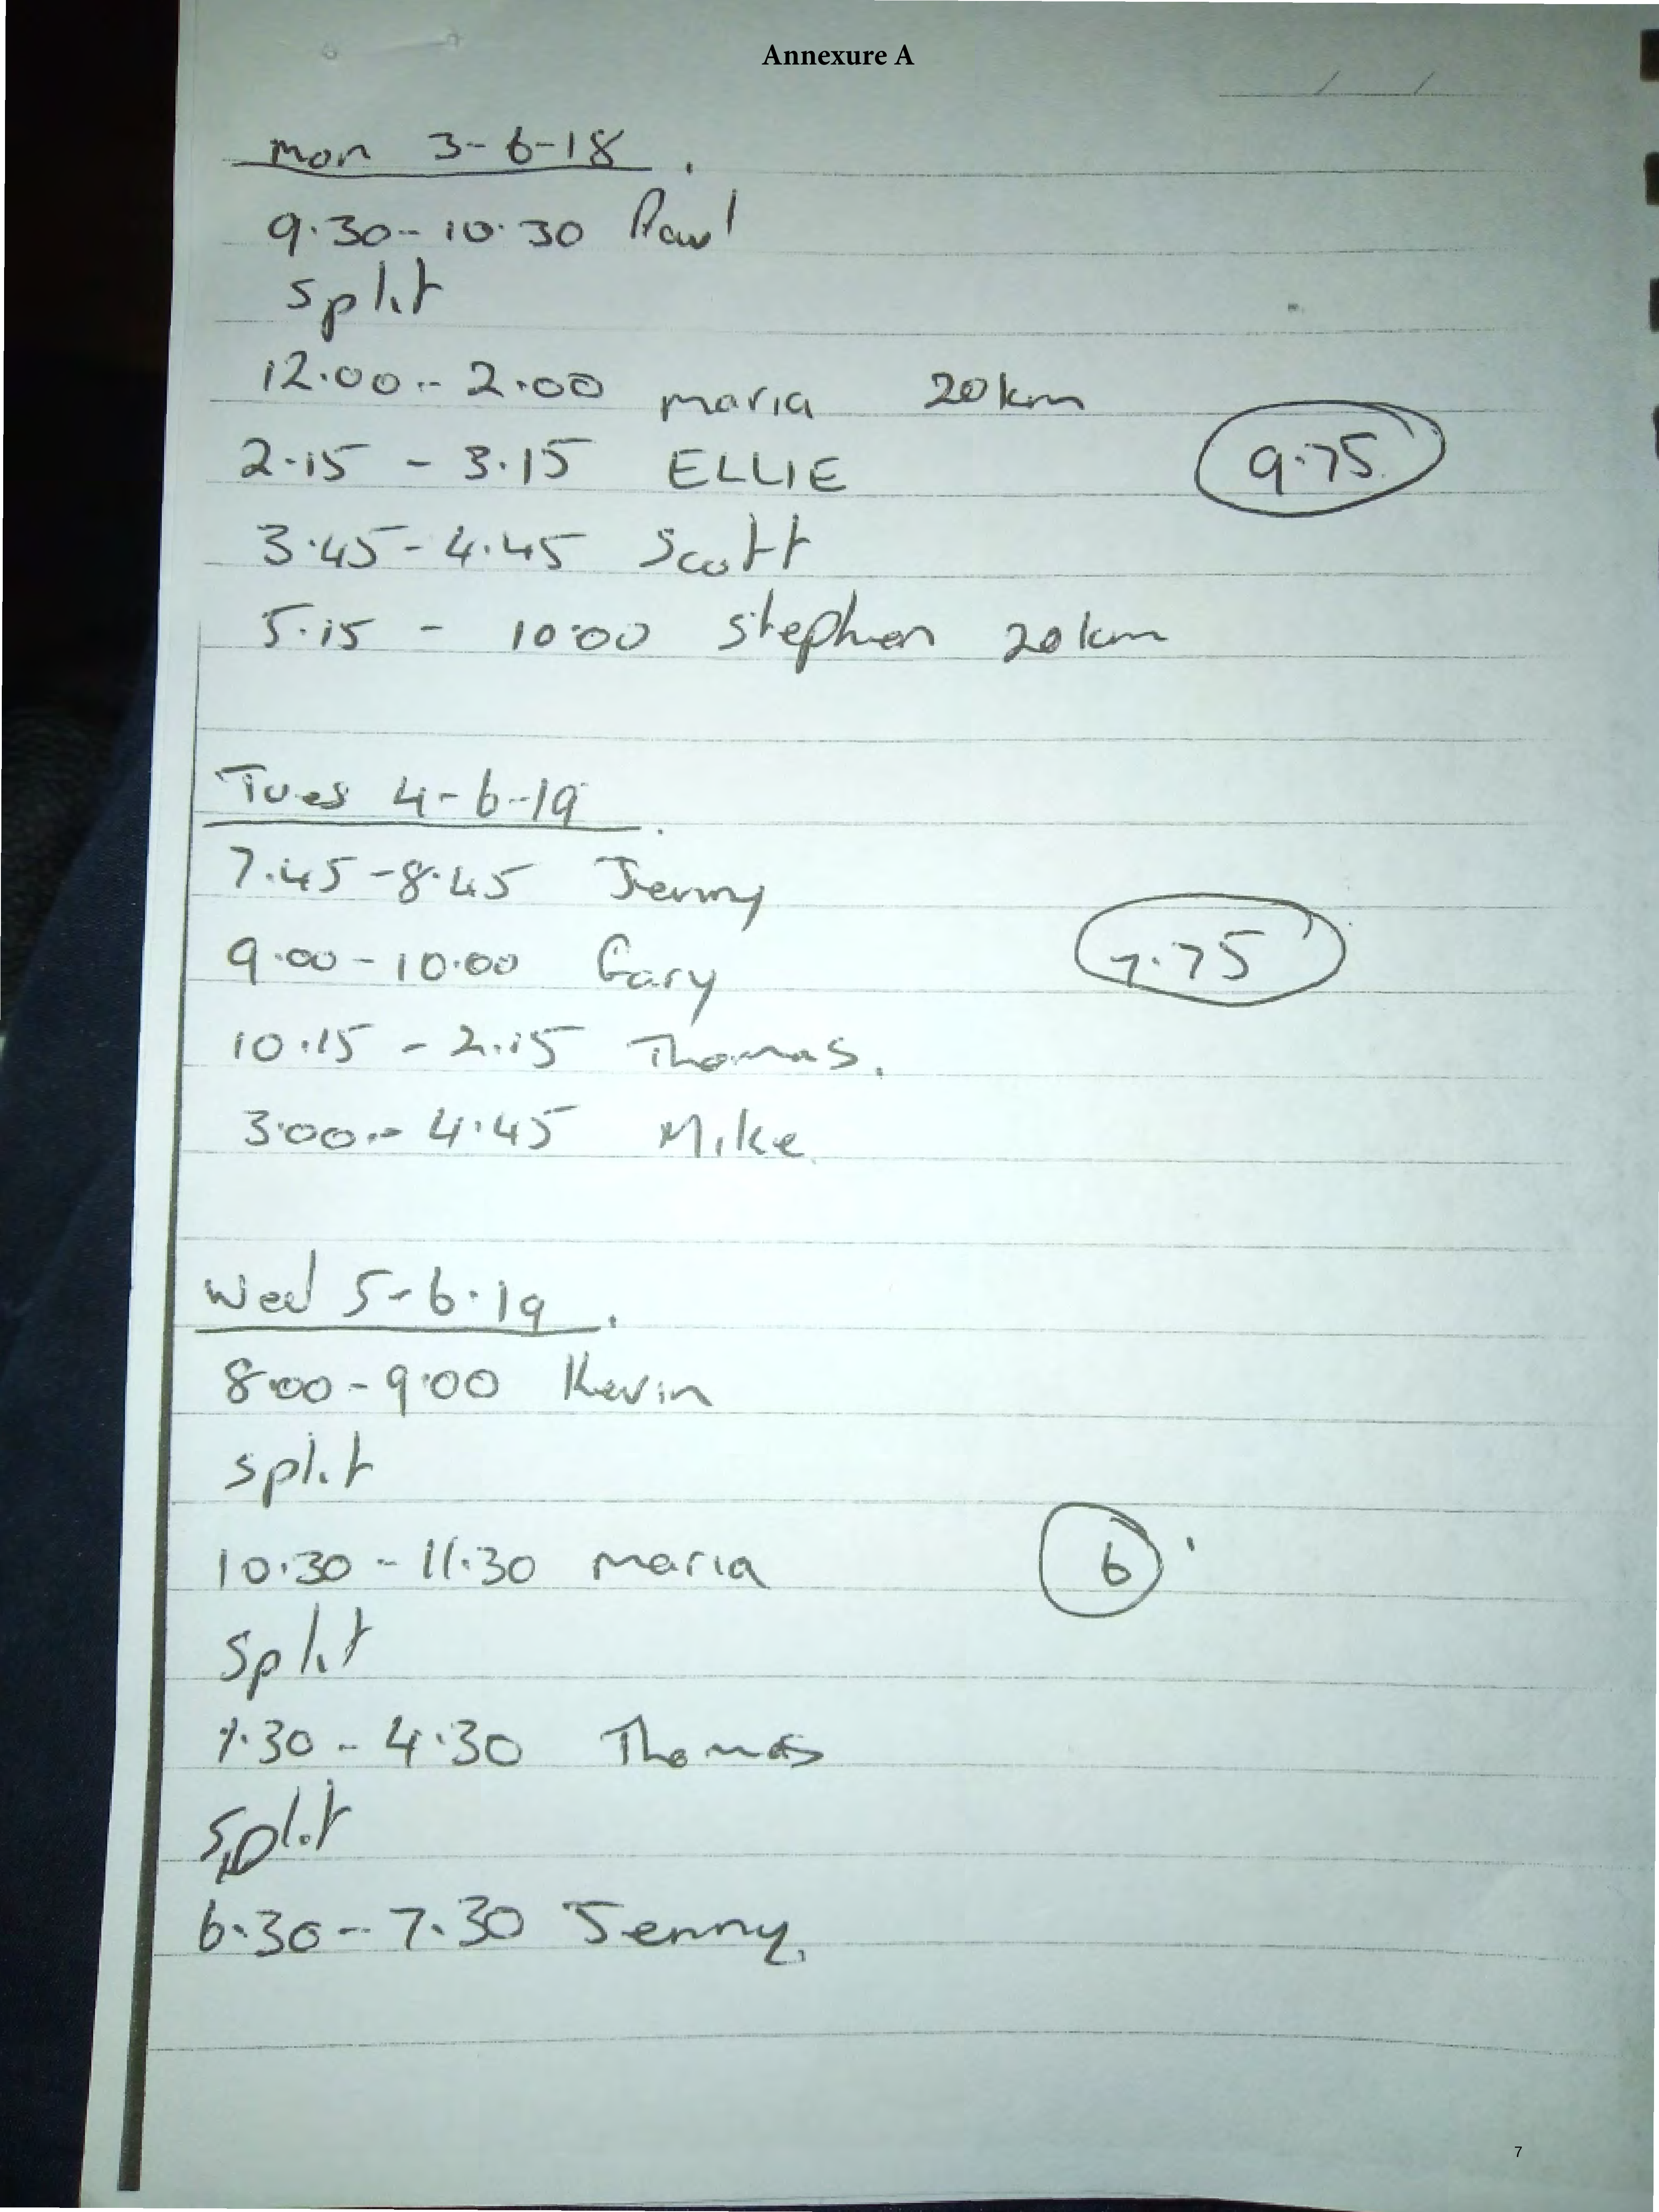 Annexure A
/ /
Mon 3-6-18.
9.30-10.30 Paul
Split
12.00-2.00 maria 20km
9.75
2.15 - 3.15 ELLIE
3.45-4.45 Scott
5.15 - 10.00 Stephen 20km
Tues 4-6-19.
7.45-8.45 Jenny
7.75
9.00-10.00 Gary
10.15 - 2.15 Thomas.
3.00-4.45 Mike
Wed 5-6.19.
8.00-9.00 Kevin
split
10.30-11.30 maria
6
Split
1.30-4.30 Thomas
Split
6.30-7.30 Jenny.
7